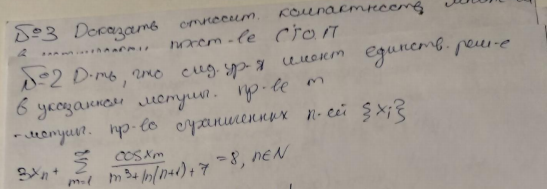 №3 Доказать относит. компактность
пжст-ве C[0,1]
№2 Д-ть, что след. ур-я имеют единств. реш-е
в указанном метрич. пр-ве m
-метрич. пр-во ограниченных п-ей {xi}
3xn + ∞∑m=1 cos xm / m³+n(n+1)+7 = 8, n∈N